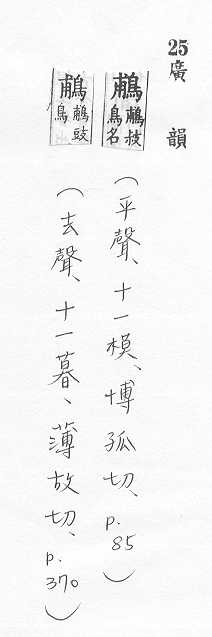 25 廣韻
鵏 鵏㧊鳥名 (平聲、十一模、博孤切、p.85)
鵏 鵏豉鳥 (去聲、十一暮、薄故切、p.370)